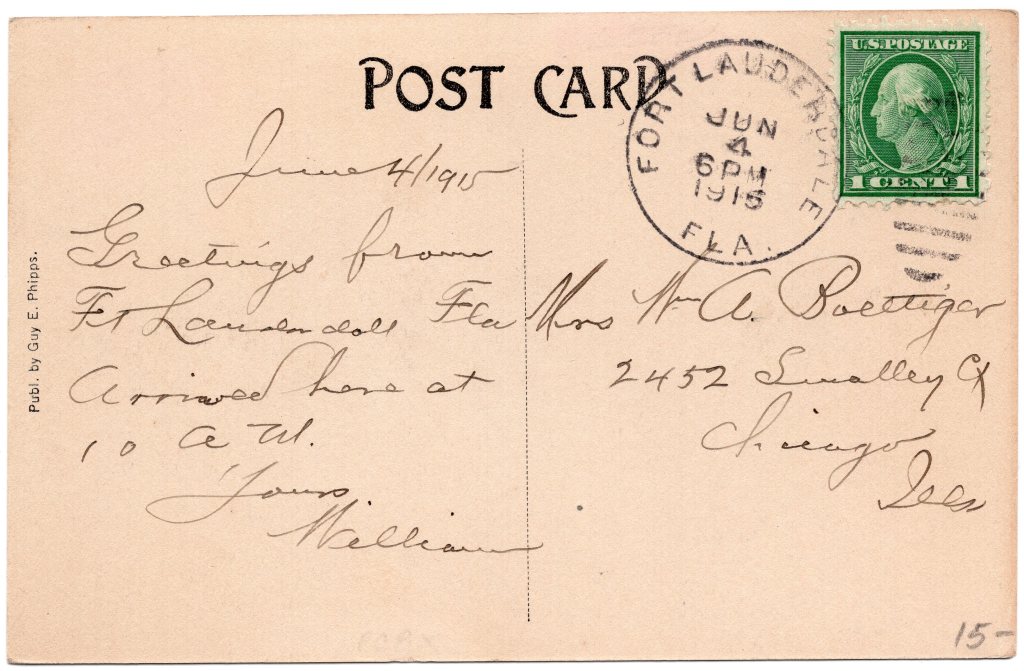 POST CARD
FORT LAUDERDALE
JUN
4
6 PM
1915
FLA.
U.S. POSTAGE
1 CENT 1
June 4/1915
Greetings from
Ft Lauderdall Fla
Arrived here at
10 A M.
Yours
William
Mrs Wm A. Boettiger
2452 Smalley Ct
Chicago
Ills
Publ. by Guy E. Phipps.
15-